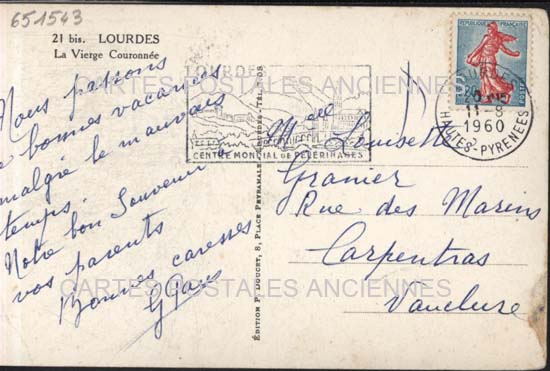 651543
21 bis. LOURDES
La Vierge Couronnée
Nous passons
de bonnes vacances
malgré le mauvais
temps.
Notre bon Souvenir à
vos parents
Bonnes caresses
ÉDITION P. DOUCET, 8, PLACE PEYRAMALE, LOURDES
LOURDES
CENTRE MONDIAL DE PÈLERINAGES
RÉPUBLIQUE FRANÇAISE
POSTES
LOURDES
11-8
1960
HAUTES-PYRÉNÉES
Melle Louisette
Granier
Rue des Marins
Carpentras
Vaucluse
CARTES POSTALES ANCIENNES
CARTES POSTALES ANCIENNES